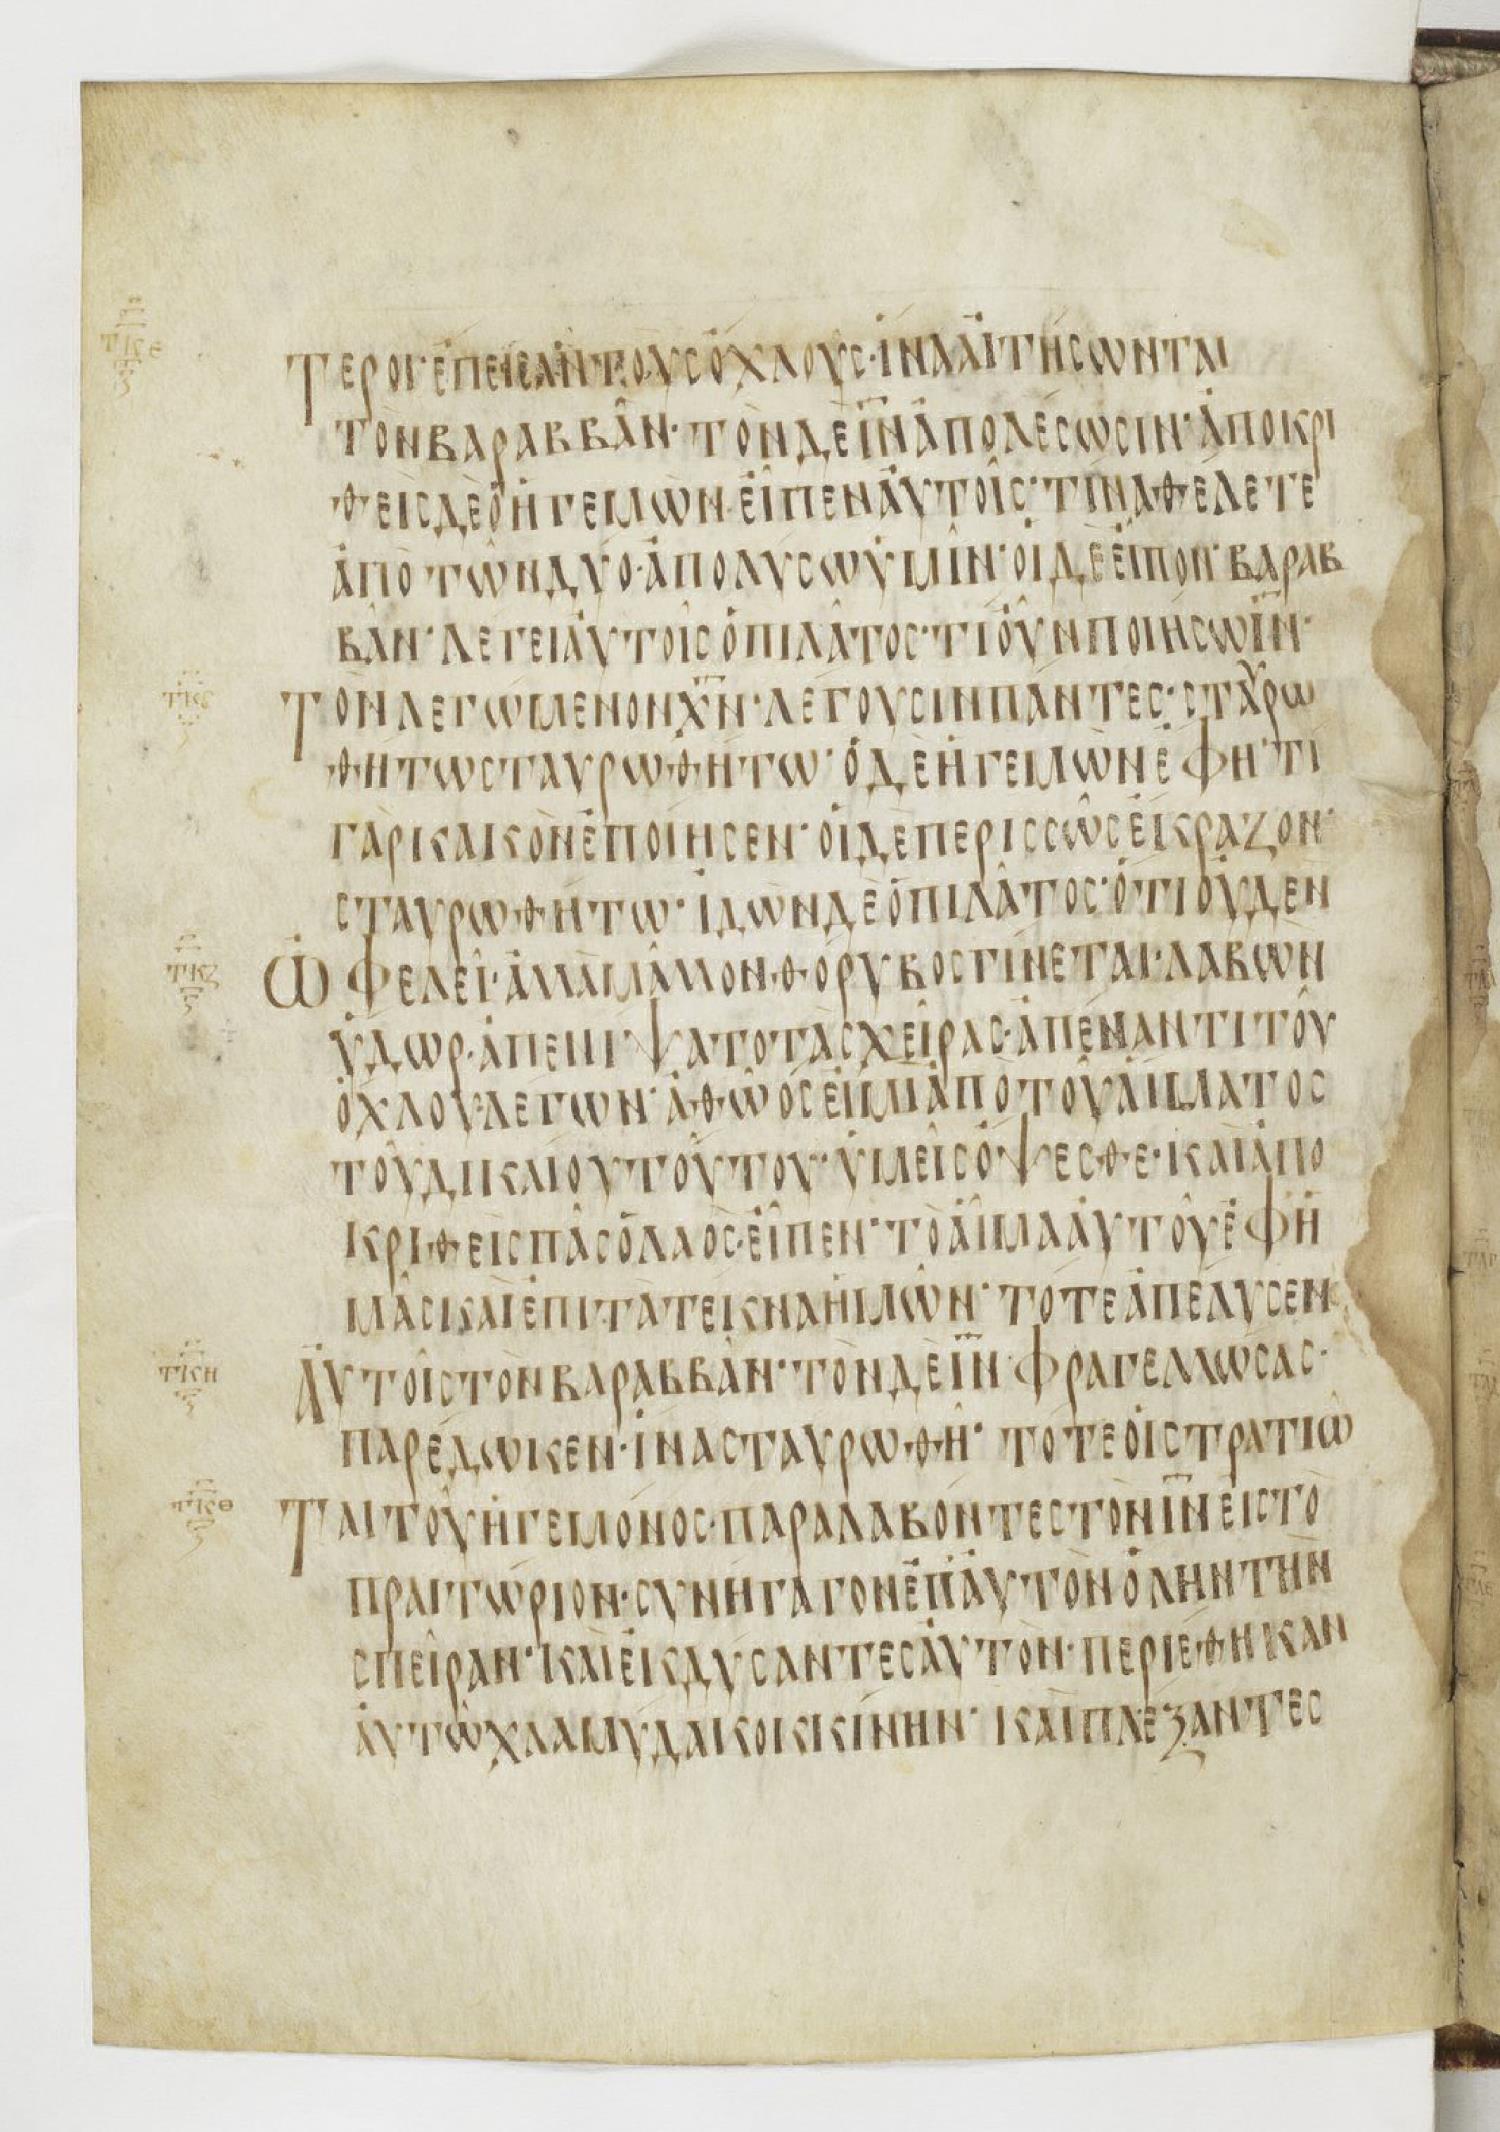 ΤΙΚΕ
ΤΕΡΟΙ ἘΠΕΙΣΑΝ ΤΟΥΣ ὌΧΛΟΥΣ· ἽΝΑ ΑἸΤΉΣΩΝΤΑΙ
ΤῸΝ ΒΑΡΑΒΒᾶΝ· ΤῸΝ ΔῈ ΙΝ ἈΠΟΛΈΣΩΣΙΝ· ἈΠΟΚΡΙ
ΘΕΙΣ ΔῈ Ὁ ἩΓΕΜῺΝ ΕἾΠΕΝ ΑὐΤΟῖΣ· ΤΊΝΑ ΘΈΛΕΤΕ
ἈΠῸ ΤῶΝ ΔΎΟ· ἈΠΟΛΥΣΩ ὙΜῖΝ· ΟἹ ΔῈ ΕἾΠΟΝ· ΒΑΡΑΒ
ΒᾶΝ· ΛΈΓΕΙ ΑὐΤΟῖΣ Ὁ ΠΙΛᾶΤΟΣ· ΤΊ ΟὖΝ ΠΟΙΉΣΩ ΙΝ·
ΤΙΚϚ
ΤῸΝ ΛΕΓΩΜΕΝΟΝ ΧΝ· ΛΈΓΟΥΣΙΝ ΠΆΝΤΕΣ· ΣΤΑΥΡΩ
ΘΗΤΩ ΣΤΑΥΡΩΘΉΤΩ· Ὁ ΔῈ ἩΓΕΜῺΝ ἜΦΗ· ΤΊ
ΓᾺΡ ΚΑΚῸΝ ἘΠΟΊΗΣΕΝ· ΟἹ ΔῈ ΠΕΡΙΣΣῶΣ ἜΚΡΑΖΟΝ·
ΣΤΑΥΡΩΘΉΤΩ· ἸΔῺΝ ΔῈ Ὁ ΠΙΛᾶΤΟΣ· ὍΤΙ ΟὐΔΕΝ
ΤΙΚΖ
ὨΦΕΛΕῖ· ἈΛΛᾺ ΜᾶΛΛΟΝ ΘΌΡΥΒΟΣ ΓΊΝΕΤΑΙ· ΛΑΒῺΝ
ὝΔΩΡ· ἈΠΕΝΙΨΑΤΟ ΤᾺΣ ΧΕῖΡΑΣ· ἈΠΈΝΑΝΤΙ ΤΟῦ
ὌΧΛΟΥ· ΛΕΓΩΝ· ἈΘῶΟΣ ΕἸΜΙ ἈΠῸ ΤΟῦ ΑἽΜΑΤΟΣ
ΤΟῦ ΔΙΚΑΙΟΥ ΤΟΎΤΟΥ· ὙΜΕῖΣ ὌΨΕΣΘΕ· ΚΑῚ ἈΠΟ
ΚΡΙΘΕῚΣ ΠᾶΣ Ὁ ΛΑῸΣ· ΕἾΠΕΝ· ΤῸ ΑἽΜΑ ΑὐΤΟῦ ἘΦ Ἡ
ΜᾶΣ ΚΑῚ ἘΠΙ ΤᾺ ΤΈΚΝΑ ἩΜῶΝ· ΤΌΤΕ ἈΠΈΛΥΣΕΝ
ΤΙΚΗ
ΑὐΤΟῖΣ ΤῸΝ ΒΑΡΑΒΒᾶΝ· ΤῸΝ ΔῈ ΙΝ· ΦΡΑΓΕΛΛΏΣΑΣ·
ΠΑΡΈΔΩΚΕΝ· ἽΝΑ ΣΤΑΥΡΩΘῆ· ΤΌΤΕ ΟἹ ΣΤΡΑΤΙΩ
ΤΙΚΘ
ΤΑΙ ΤΟῦ ἩΓΕΜΌΝΟΣ· ΠΑΡΑΛΑΒΌΝΤΕΣ ΤῸΝ ΙΝ ΕἸΣ ΤῸ
ΠΡΑΙΤΏΡΙΟΝ· ΣΥΝΉΓΑΓΟΝ ἘΠ ΑὐΤῸΝ ὍΛΗΝ ΤῊΝ
ΣΠΕῖΡΑΝ· ΚΑῚ ἘΚΔΎΣΑΝΤΕΣ ΑὐΤῸΝ· ΠΕΡΙΈΘΗΚΑΝ
ΑὐΤῶ ΧΛΑΜΎΔΑ ΚΟΚΚΊΝΗΝ· ΚΑῚ ΠΛΈΞΑΝΤΕΣ